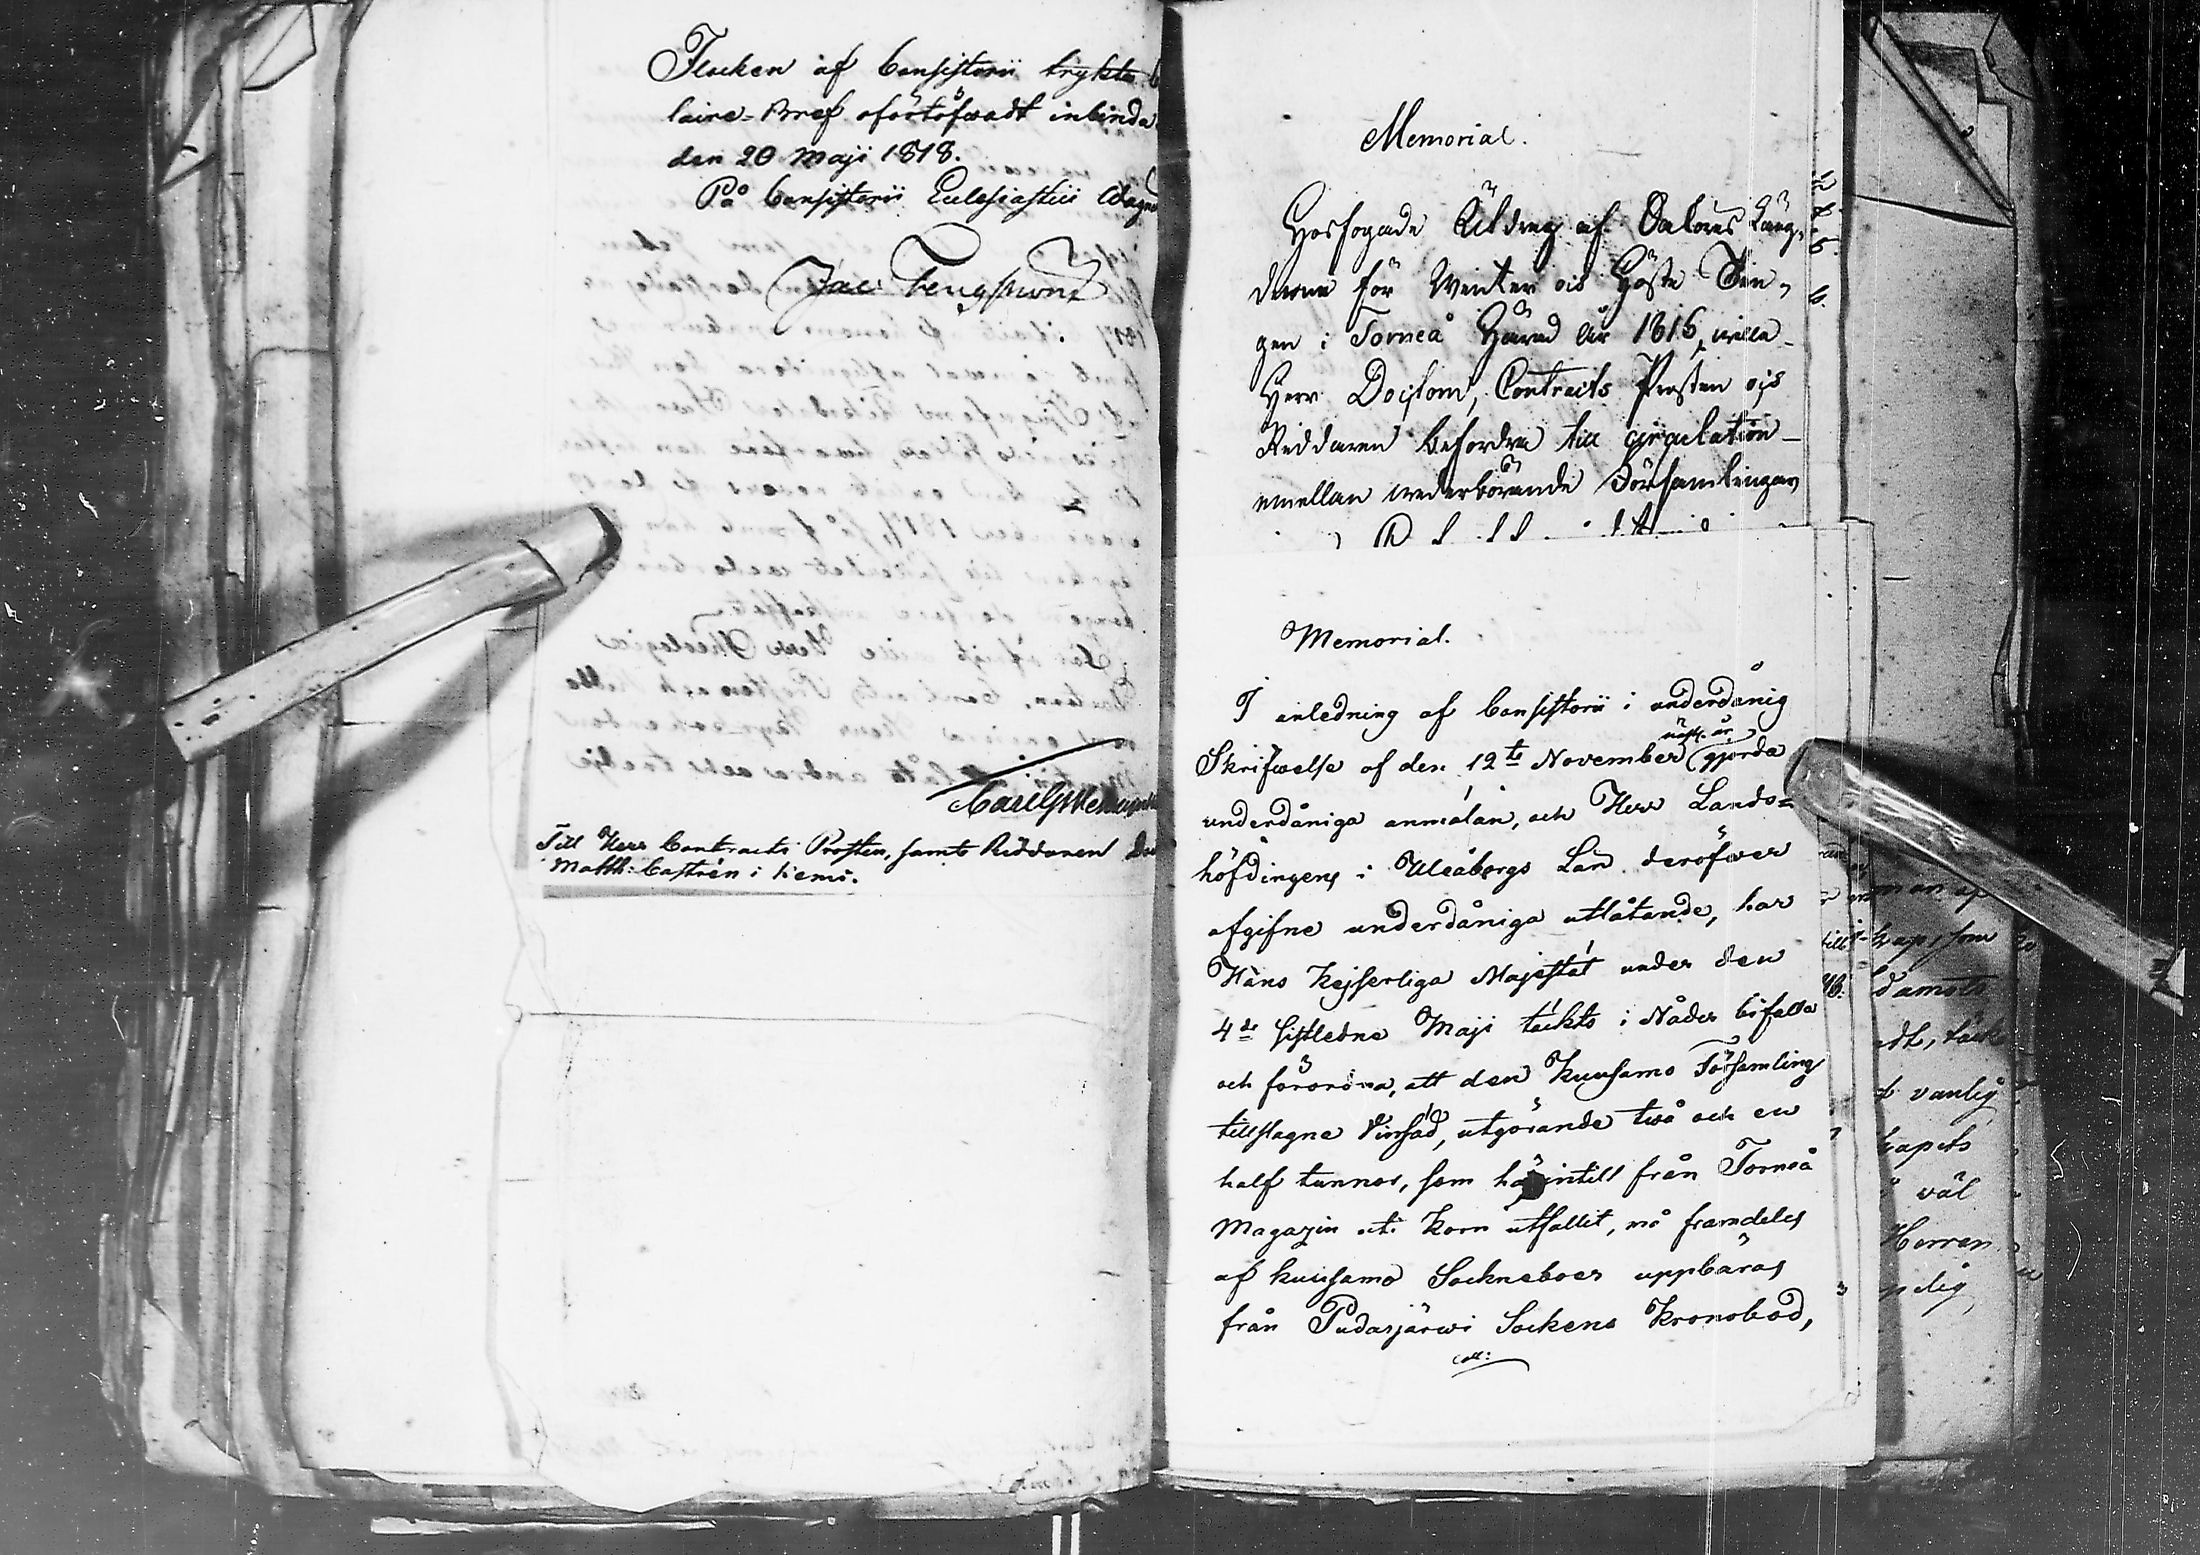 Flocken af Consistorii tryckta
laire-Bref oförtöfwadt inbinda
den 20 Maji 1818.
På Consistorii Eclesiastici
Jac: Tengström
Till Herr Contracts Prosten, samt Riddaren
Matth: Castrén i Kemi.
Memorial.
Hosfogade Utdrag af Saköres Läng-
derne för Winter och Höste Tin-
gen i Torneå Härad år 1816, wille
Herr Doctorn, Contracts Prosten och
Riddaren befordra till circulation
emellan wederbörande Församlingar
Memorial.
I anledning af Consistorii i underdånig
Skrifwelse af den 12te November näst. år gjorda
underdåniga anmälan, och Herr Lands=
höfdingens i Uleåborgs Län deröfwer
afgifne underdåniga utlåtande, har
Hans Kejserliga Majestät under den
4de sistledne Maji täckts i Nåder bifalla
och förordna, att den Kuusamo Församling
tillslagne Vinsäd, utgörande twå och en
half tunnor, som härintill från Torneå
Magazin uti Korn utfallit, må framdeles
af Kuusamo Sockneboer uppbäras
från Pudasjärwi Sockens Kronobod,
coll:
man af
skap, som
damots
vanlig
kapets
väl
Herren